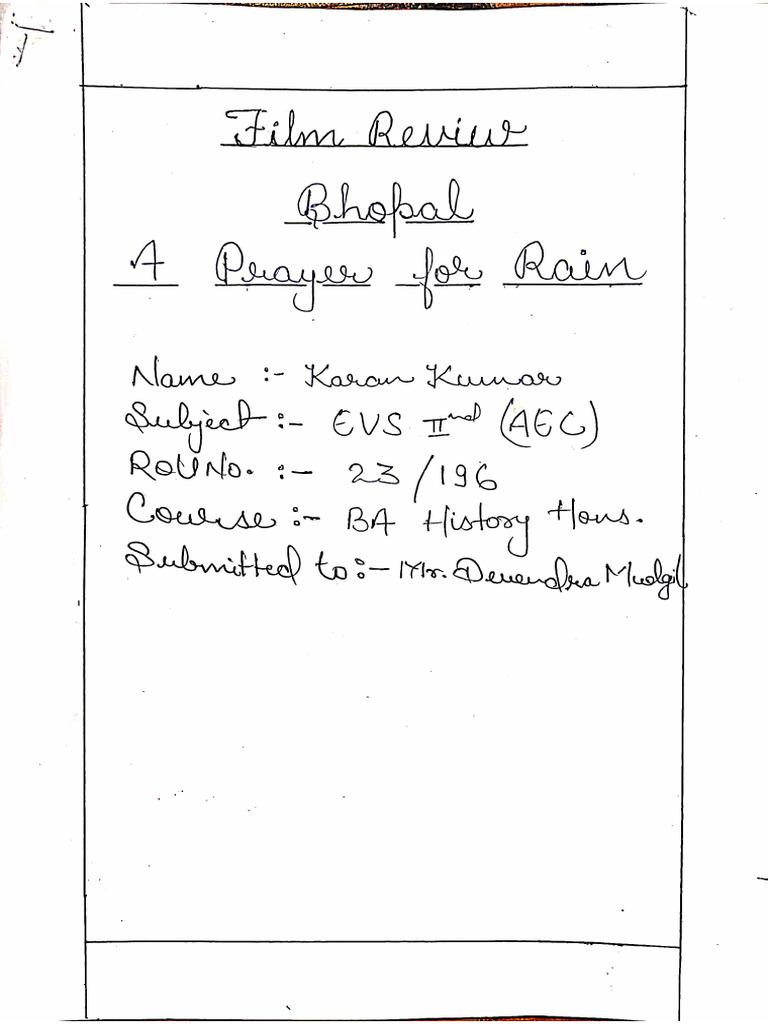 Film Review
Bhopal
A Prayer for Rain
Name :- Karan Kumar
Subject :- EVS IInd (AEC)
Roll No. :- 23/196
Course :- BA History Hons.
Submitted to :- Mr. Devendra Mudgil